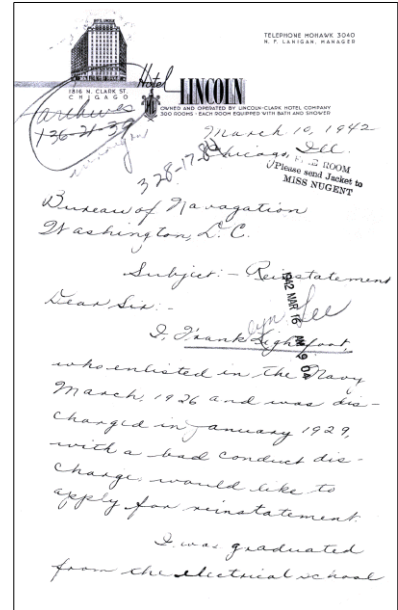 TELEPHONE MOHAWK 3040
N. F. LANIGAN, MANAGER
1816 N. CLARK ST.
CHICAGO
Hotel LINCOLN
OWNED AND OPERATED BY LINCOLN-CLARK HOTEL COMPANY
300 ROOMS - EACH ROOM EQUIPPED WITH BATH AND SHOWER
Archives
136-21-37
March 10, 1942
Chicago, Ill.
328-17-84
FILE ROOM
Please send Jacket to
MISS NUGENT
Bureau of Navagation
Washington, D. C.
Subject: - Reinstatement
1942 MAR 16 AM 9 04
Dear Sir: -
Lee
I, Frank Lightfoot,
who enlisted in the Navy
March, 1926 and was dis-
charged in January 1929,
with a bad conduct dis-
charge, would like to
apply for reinstatement.
I was graduated
from the electrical school